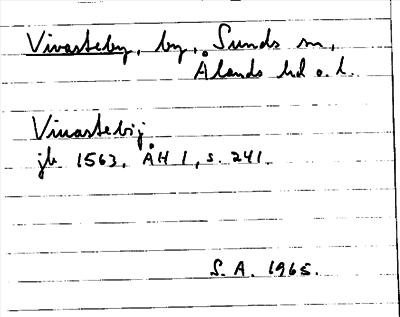 Vivasteby, by, Sunds sn,
Ålands hd o. l.
Vivastebÿ
jb 1563, ÅH 1, s. 241.
S. A. 1965.